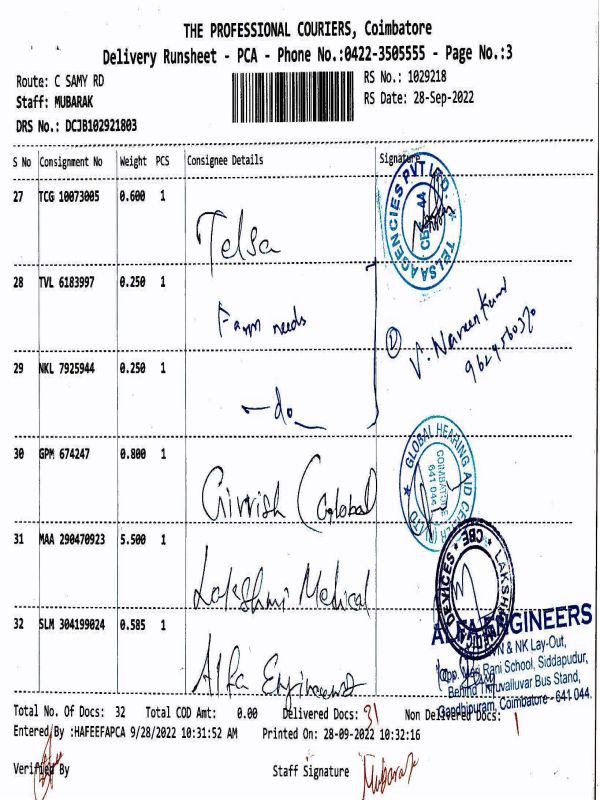 THE PROFESSIONAL COURIERS, Coimbatore
Delivery Runsheet - PCA - Phone No.:0422-3505555 - Page No.:3
Route: C SAMY RD RS No.: 1029218
Staff: MUBARAK RS Date: 28-Sep-2022
DRS No.: DCJB102921803
S No Consignment No Weight PCS Consignee Details Signature
27 TCG 10073005 0.600 1 Telsa
TELSA AGENCIES PVT.LTD.
28 TVL 6183997 0.250 1 Farm needs
① V. Naveen Kumar
29 NKL 7925944 0.250 1 -do-
30 GPM 674247 0.800 1 Girrish (Global
GLOBAL HEARING AID CENTER
COIMBATORE
641 044
31 MAA 290470923 5.500 1 Lakshmi Medical
LAKSHMI MEDICAL DEVICES * CBE *
32 SLM 304199024 0.585 1 Alfa Engineers
ALFA ENGINEERS
VN & NK Lay-Out,
Opp. Mani Rani School, Siddapudur,
Behind Thiruvalluvar Bus Stand,
Gandhipuram, Coimbatore - 641 044.
Total No. Of Docs: 32 Total COD Amt: 0.00 Delivered Docs: 31 Non Delivered Docs: 1
Entered By :HAFEEFAPCA 9/28/2022 10:31:52 AM Printed On: 28-09-2022 10:32:16
Verified By Staff Signature Mubarak